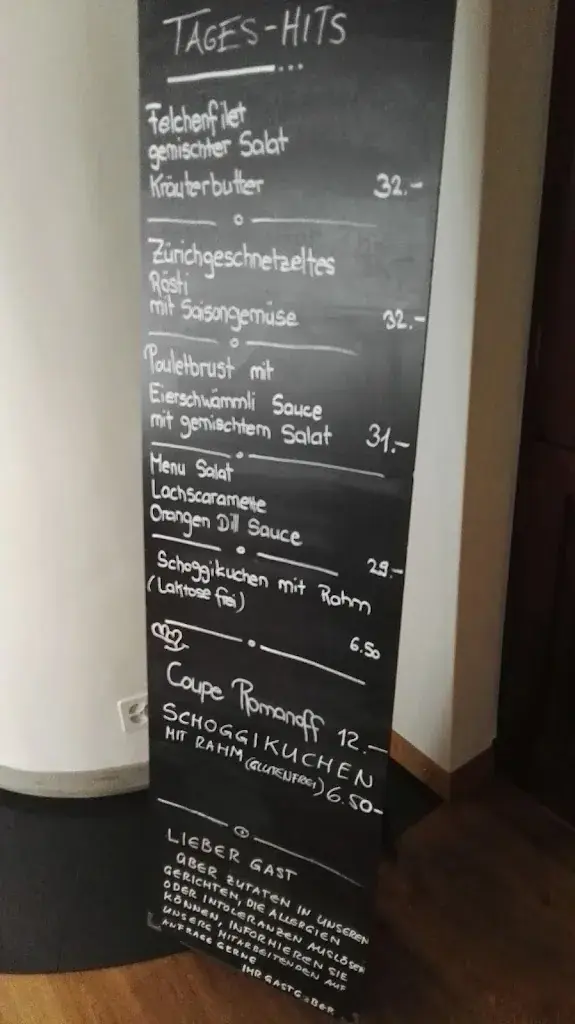 TAGES-HITS
Felchenfilet
gemischter Salat
Kräuterbutter 32.-
Zürichgeschnetzeltes
Rösti
mit Saisongemüse 32.-
Pouletbrust mit
Eierschwämmli Sauce
mit gemischtem Salat 31.-
Menu Salat
Lachscaramelle
Orangen Dill Sauce
29.-
Schoggikuchen mit Rahm
(Laktose frei)
6.50
Coupe Romanoff 12.-
SCHOGGIKUCHEN
MIT RAHM (GLUTENFREI) 6.50-
LIEBER GAST
ÜBER ZUTATEN IN UNSEREN
GERICHTEN, DIE ALLERGIEN
ODER INTOLERANZEN AUSLÖSEN
KÖNNEN, INFORMIEREN SIE
UNSERE MITARBEITENDEN AUF
ANFRAGE GERNE
IHR GASTGEBER